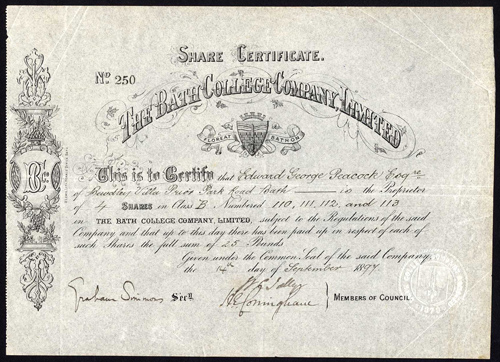 SHARE CERTIFICATE.
No 250
THE BATH COLLEGE COMPANY, LIMITED
FLOREAT BATHON
This is to Certify that Edward George Peacock Esqre
of Villa Prior Park Road Bath is the Proprietor
of 4 SHARES in Class B Numbered 110, 111, 112, and 113
in THE BATH COLLEGE COMPANY, LIMITED, subject to the Regulations of the said
Company and that up to this day there has been paid up in respect of each of
such Shares the full sum of 25 Pounds
Given under the Common Seal of the said Company,
the 14th day of September 1897
Graham Simmons Secy.
MEMBERS OF COUNCIL